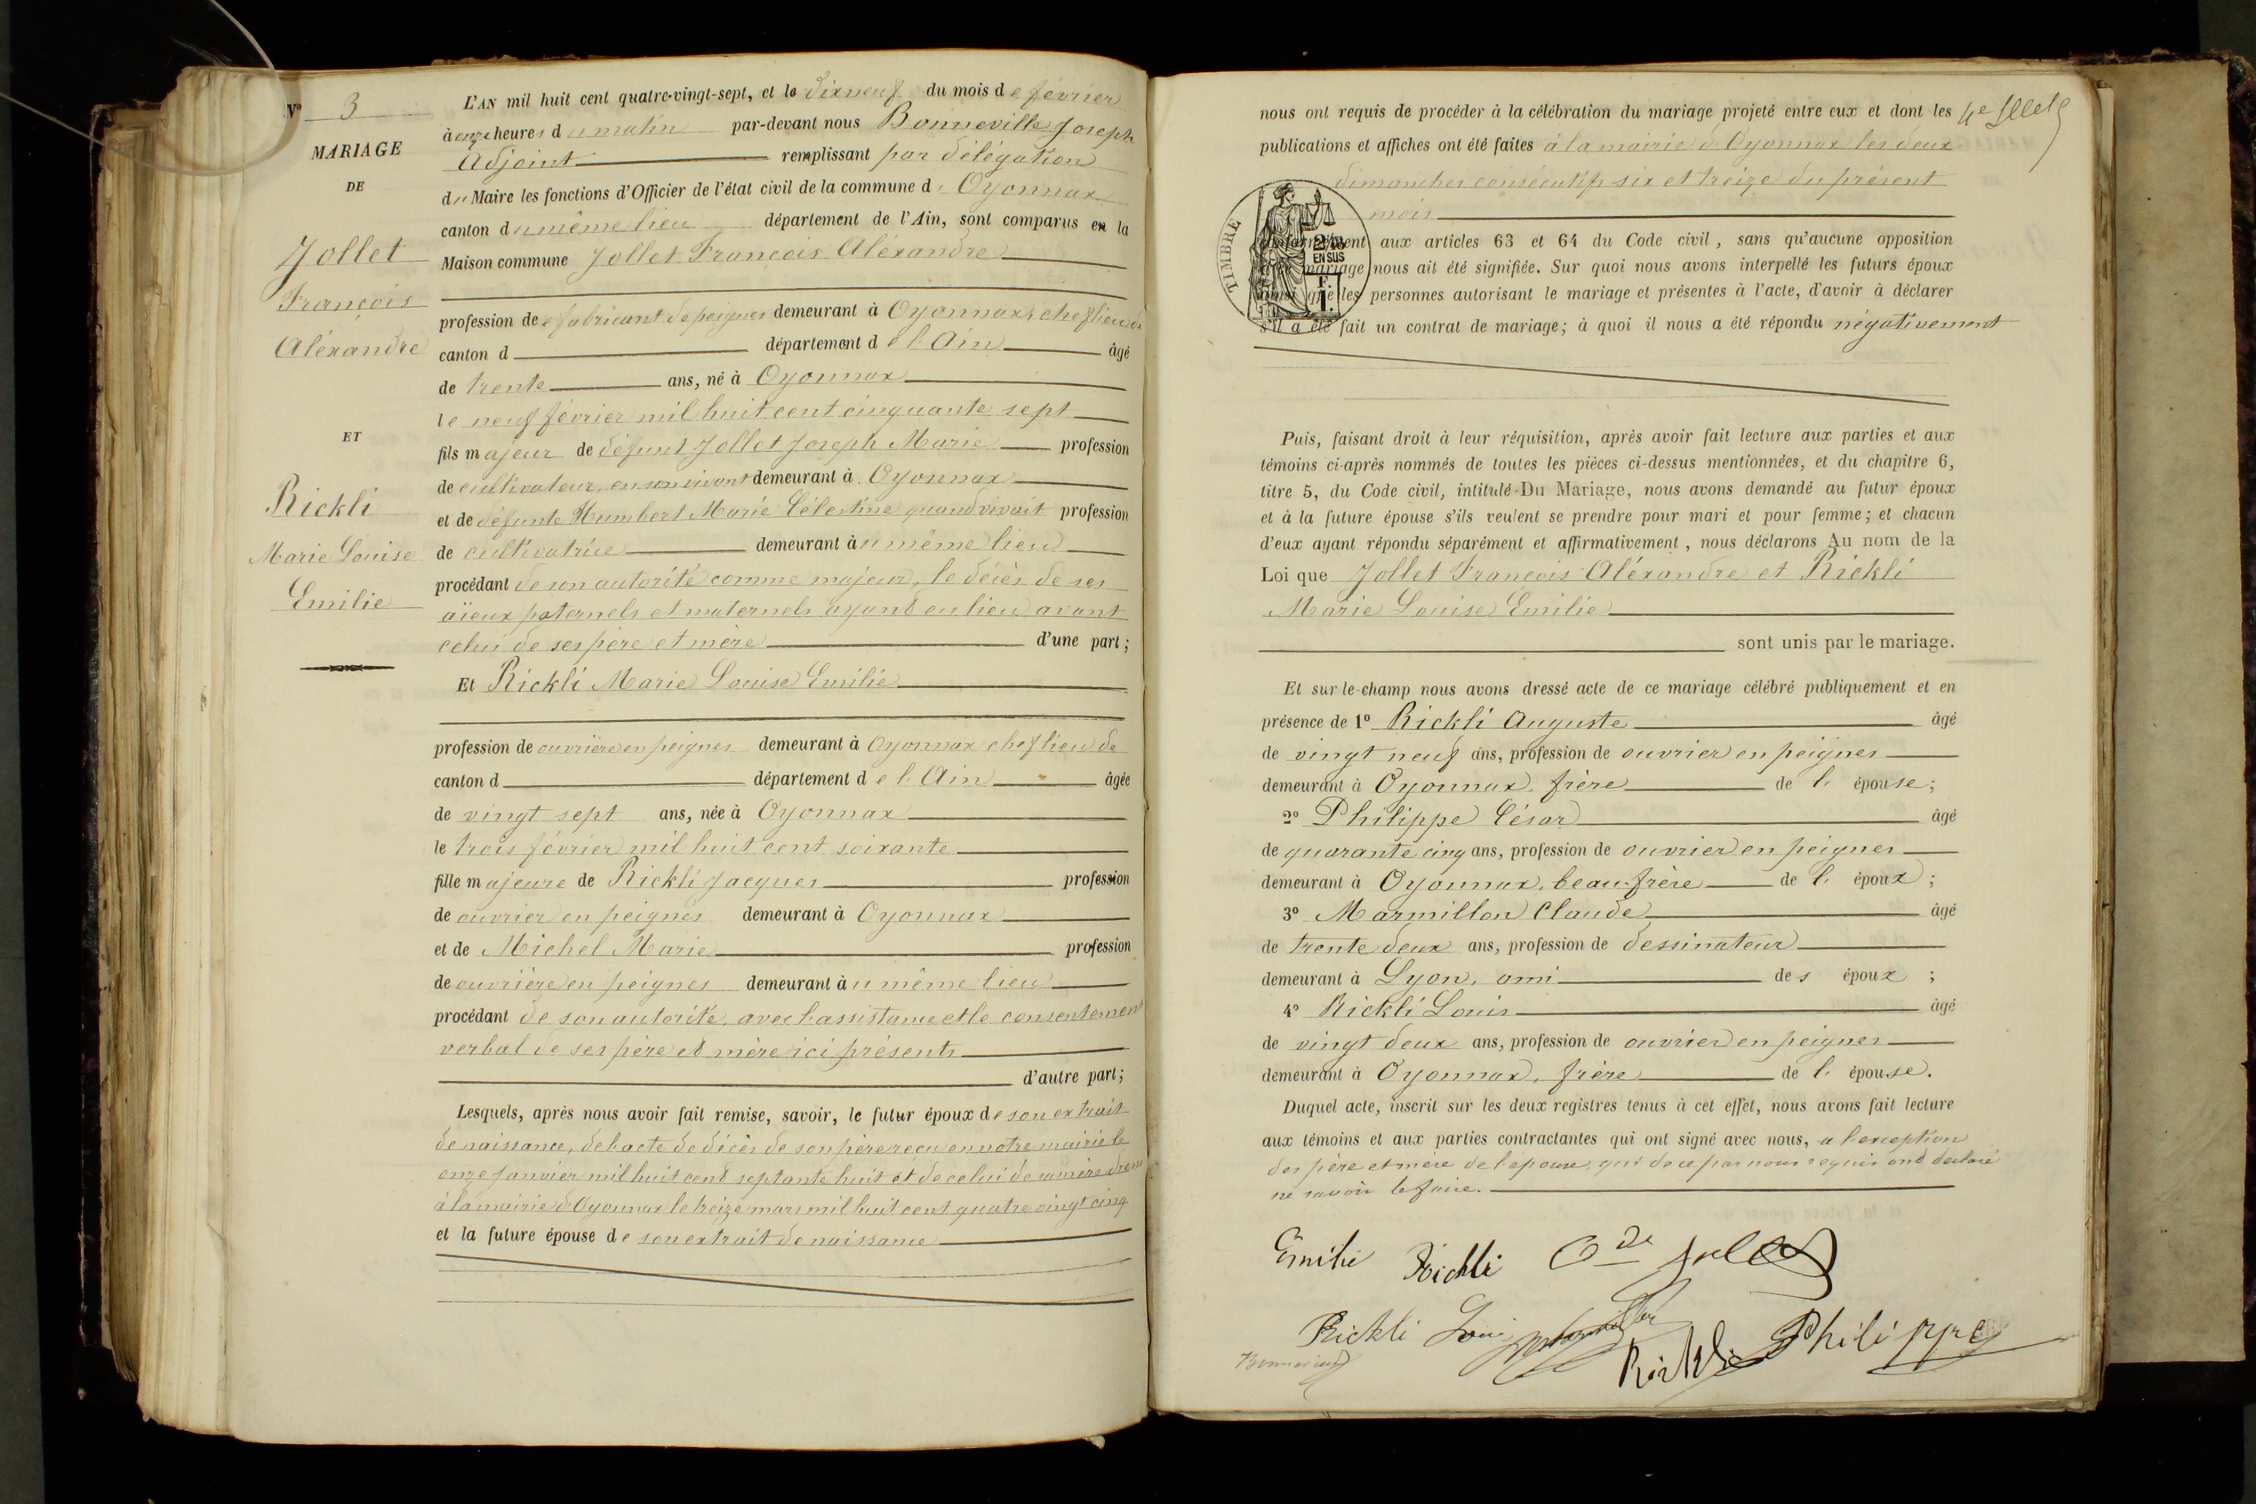 N° 3
MARIAGE
DE
Jollet
François
Aléxandre
ET
Rickli
Marie Louise
Emilie
L'AN mil huit cent quatre-vingt-sept, et le dix neuf du mois de février
à onze heures du matin par-devant nous Bonneville Joseph
Adjoint remplissant par délégation
du Maire les fonctions d'Officier de l'état civil de la commune d'Oyonnax
canton du même lieu département de l'Ain, sont comparus en la
Maison commune Jollet François Aléxandre
profession de fabricant de peignes demeurant à Oyonnax, chef lieu de
canton d département de l'Ain âgé
de trente ans, né à Oyonnax
le neuf février mil huit cent cinquante sept
fils majeur de défunt Jollet Joseph Marie profession
de cultivateur en son vivant demeurant à Oyonnax
et de défunte Humbert Marie Célestine quand vivait profession
de cultivatrice demeurant au même lieu
procédant de son autorité comme majeur, le décès de ses
aïeux paternels et maternels ayant eu lieu avant
celui de ses père et mère d'une part;
Et Rickli Marie Louise Emilie
profession de ouvrière en peignes demeurant à Oyonnax chef lieu de
canton d département de l'Ain âgée
de vingt sept ans, née à Oyonnax
le trois février mil huit cent soixante
fille majeure de Rickli Jacques profession
de ouvrier en peignes demeurant à Oyonnax
et de Michel Marie profession
de ouvrière en peignes demeurant au même lieu
procédant de son autorité, avec l'assistance et le consentement
verbal de ses père et mère ici présents
d'autre part;
Lesquels, après nous avoir fait remise, savoir, le futur époux de son extrait
de naissance, de l'acte de décès de son père reçu en notre mairie le
onze janvier mil huit cent septante huit et de celui de sa mère
à la mairie d'Oyonnax le treize mars mil huit cent quatre vingt cinq
et la future épouse de son extrait de naissance
nous ont requis de procéder à la célébration du mariage projeté entre eux et dont les
publications et affiches ont été faites à la mairie d'Oyonnax les deux
dimanches consécutifs six et treize du présent
mois
TIMBRE
2/10
EN SUS
F.
1.
conformément aux articles 63 et 64 du Code civil, sans qu'aucune opposition
mariage nous ait été signifiée. Sur quoi nous avons interpellé les futurs époux
ainsi que les personnes autorisant le mariage et présentes à l'acte, d'avoir à déclarer
s'il a été fait un contrat de mariage; à quoi il nous a été répondu négativement
Puis, faisant droit à leur réquisition, après avoir fait lecture aux parties et aux
témoins ci-après nommés de toutes les pièces ci-dessus mentionnées, et du chapitre 6,
titre 5, du Code civil, intitulé Du Mariage, nous avons demandé au futur époux
et à la future épouse s'ils veulent se prendre pour mari et pour femme; et chacun
d'eux ayant répondu séparément et affirmativement, nous déclarons Au nom de la
Loi que Jollet François Aléxandre et Rickli
Marie Louise Emilie
sont unis par le mariage.
Et sur-le-champ nous avons dressé acte de ce mariage célébré publiquement et en
présence de 1° Rickli Auguste âgé
de vingt neuf ans, profession de ouvrier en peignes
demeurant à Oyonnax, frère de l'épouse;
2° Philippe César âgé
de quarante cinq ans, profession de ouvrier en peignes
demeurant à Oyonnax, beau-frère de l'époux;
3° Marmillon Claude âgé
de trente deux ans, profession de dessinateur
demeurant à Lyon, ami des époux;
4° Rickli Louis âgé
de vingt deux ans, profession de ouvrier en peignes
demeurant à Oyonnax, frère de l'épouse.
Duquel acte, inscrit sur les deux registres tenus à cet effet, nous avons fait lecture
aux témoins et aux parties contractantes qui ont signé avec nous, à l'exception
des père et mère de l'épouse, qui de ce par nous requis ont déclaré
ne savoir le faire.
Emilie Rickli Jollet
Rickli Louis Marmillon
Rickli Philippe